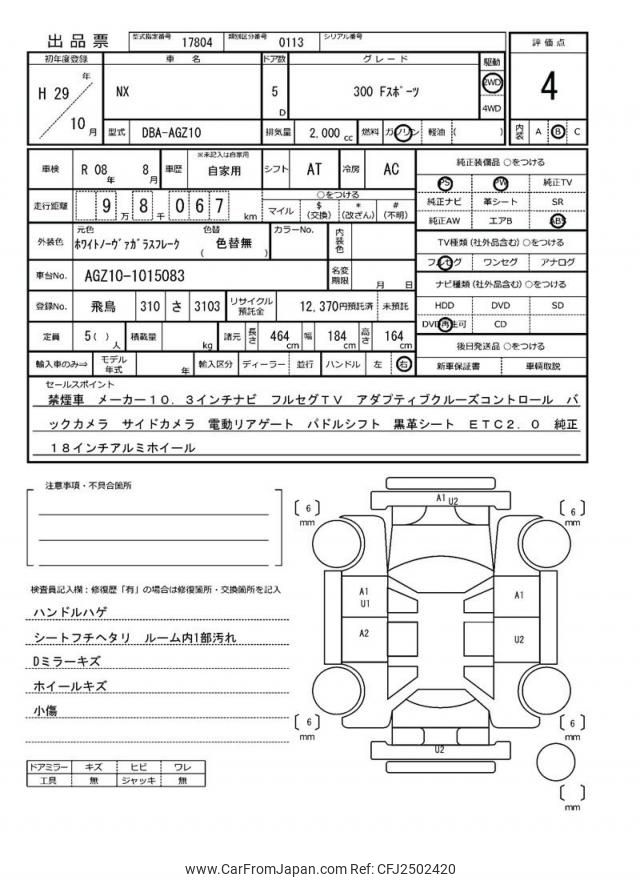 出品票 型式指定番号 17804 類別区分番号 0113 シリアル番号
初年度登録 車名 ドア数 グレード 駆動 評価点
H 29 年 10 月 NX 5 D 300 Fスポーツ 2WD 4WD 4
型式 DBA-AGZ10 排気量 2,000 cc 燃料 ガソリン 軽油 ( ) 内装 A B C
車検 R 08 年 8 月 車歴 ※未記入は自家用 自家用 シフト AT 冷房 AC
走行距離 9 万 8 千 0 6 7 km ○をつける マイル $ (交換) * (改ざん) # (不明)
外装色 元色 ホワイトノーヴァガラスフレーク 色替 ( 色替無 ) カラーNo. 内装色
車台No. AGZ10-1015083 名変期限 月 日
登録No. 飛鳥 310 さ 3103 リサイクル預託金 12,370円預託済 未預託
定員 5 ( ) 人 積載量 kg 諸元 長さ 464 cm 幅 184 cm 高さ 164 cm
輸入車のみ⇒ モデル年式 年 輸入区分 ディーラー 並行 ハンドル 左 右
純正装備品 ○をつける
PS PW 純正TV
純正ナビ 革シート SR
純正AW エアB ABS
TV種類 (社外品含む) ○をつける
フルセグ ワンセグ アナログ
ナビ種類 (社外品含む) ○をつける
HDD DVD SD
DVD再生可 CD
後日発送品 ○をつける
新車保証書 車輌取説
セールスポイント
禁煙車 メーカー10.3インチナビ フルセグTV アダプティブクルーズコントロール バ
ックカメラ サイドカメラ 電動リアゲート パドルシフト 黒革シート ETC2.0 純正
18インチアルミホイール
注意事項・不具合箇所
検査員記入欄:修復歴「有」の場合は修復箇所・交換箇所を記入
ハンドルハゲ
シートフチヘタリ ルーム内1部汚れ
Dミラーキズ
ホイールキズ
小傷
ドアミラー キズ ヒビ ワレ
工具 無 ジャッキ 無
A1 U2
[ 6 ] mm [ 6 ] mm
A1 U1
A2 U2
[ 6 ] mm [ 6 ] mm
U2
[ ] mm
www.CarFromJapan.com Ref: CFJ2502420